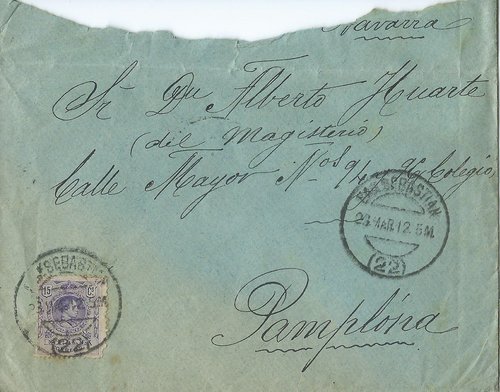 Navarra
Sr Dn Alberto Huarte
(del Magisterio)
Calle Mayor Nos 94 Colegio
SAN SEBASTIAN
23 MAR 12. 5M
(22)
SAN SEBASTIAN
15 Cs
(22)
Pamplona